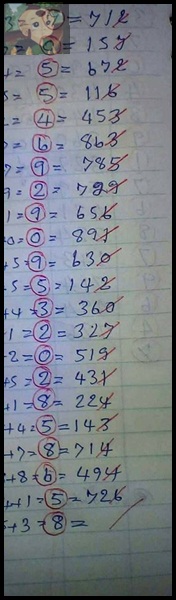 3 = 7 = 712
= 6 = 157
4 = 5 = 672
= 5 = 116
= 4 = 453
= 6 = 863
7 = 9 = 785
9 = 2 = 799
1 = 9 = 656
0 = 0 = 891
+5 = 9 = 630
5 = 5 = 142
+4 = 3 = 360
1 = 2 = 327
2 = 0 = 519
+5 = 2 = 431
+1 = 8 = 224
+4 = 5 = 143
+7 = 8 = 714
+8 = 6 = 494
+1 = 5 = 726
5+3 = 8 =